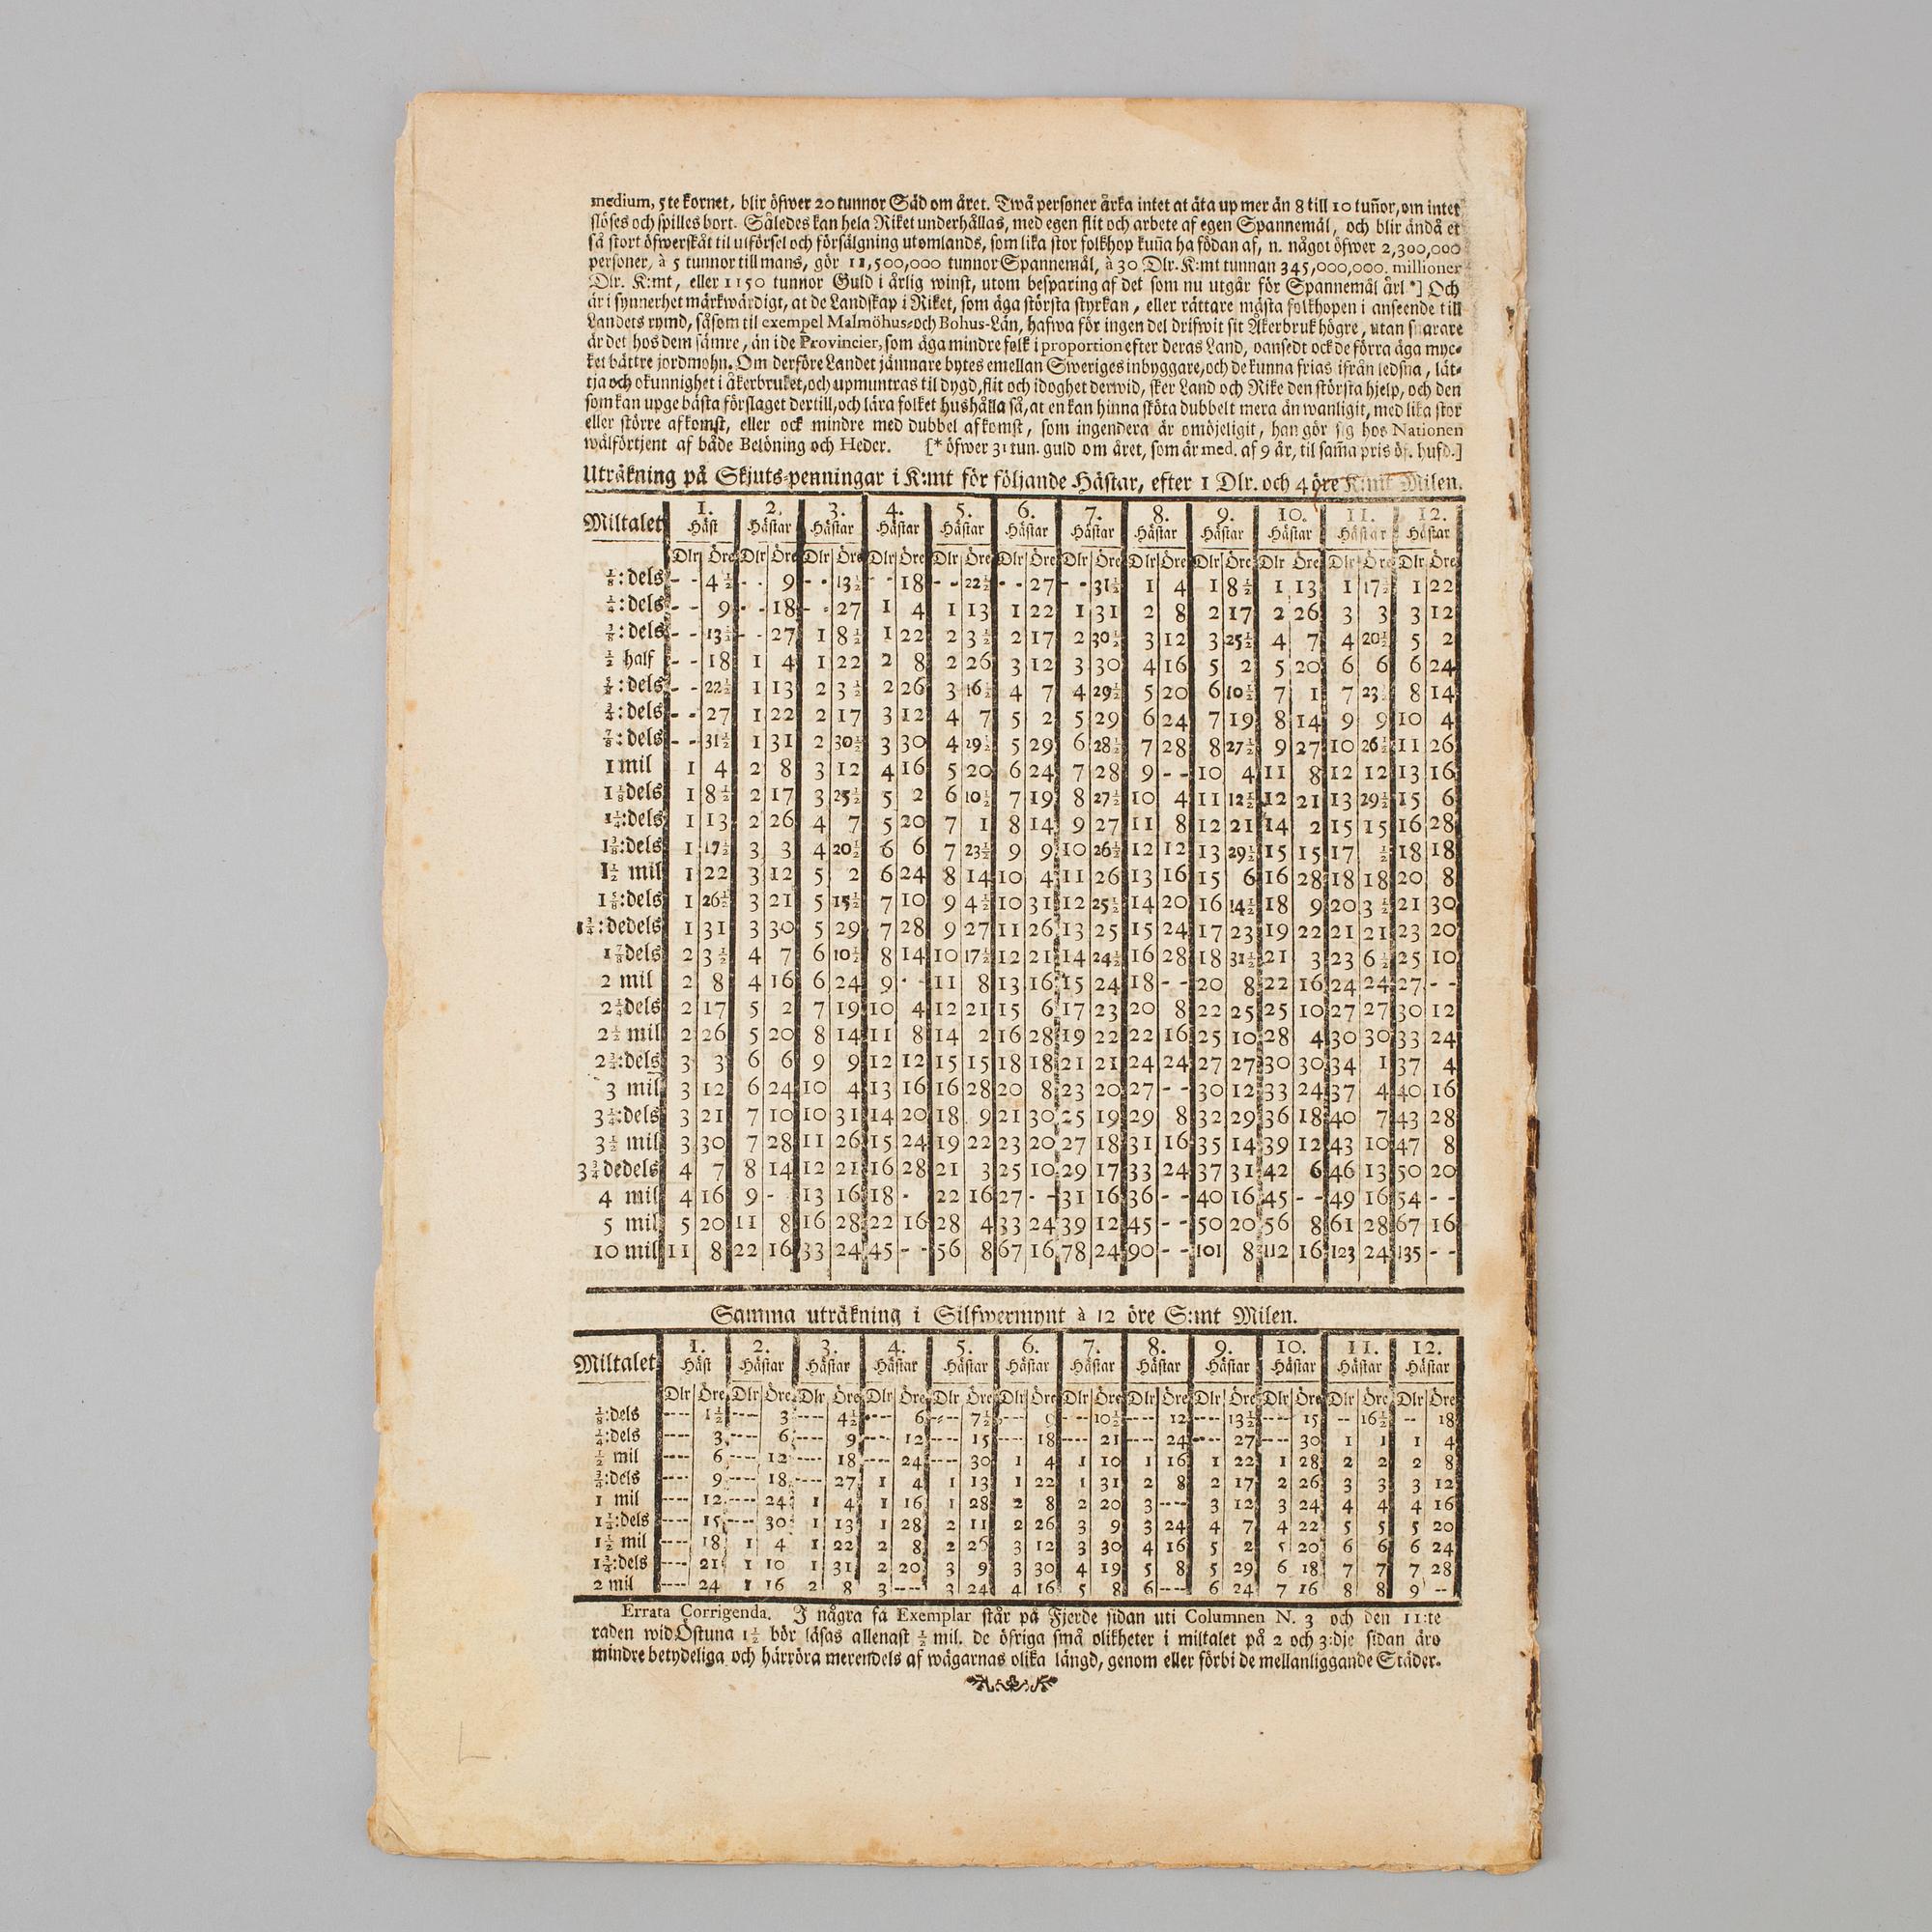 medium, 5te kornet, blir öfwer 20 tunnor Säd om året. Twå personer årka intet at äta up mer än 8 till 10 tuñor, om intet
slöses och spilles bort. Således kan hela Riket underhållas, med egen flit och arbete af egen Spannemål, och blir ändå et
så stort öfwerskåt til utförsel och försälgning utomlands, som lika stor folkhop kuña ha födan af, n. något öfwer 2,300,000
personer, à 5 tunnor till mans, gör 11,500,000 tunnor Spannemål, à 30 Dlr. K:mt tunnan 345,000,000. millioner
Dlr. K:mt, eller 1150 tunnor Guld i årlig winst, utom besparing af det som nu utgår för Spannemål årl *] Och
är i synnerhet märkwärdigt, at de Landskap i Riket, som äga största styrkan, eller rättare mästa folkhopen i anseende till
Landets rymd, såsom til exempel Malmöhus- och Bohus-Län, hafwa för ingen del drifwit sit Åkerbruk högre, utan snarare
är det hos dem sämre, än i de Provincier, som äga mindre folk i proportion efter deras Land, oansedt ock de förra äga myc-
ket bättre jordmohn. Om derföre Landet jämnare bytes emellan Sweriges inbyggare, och de kunna frias ifrån ledsna, lät-
tja och okunnighet i åkerbruket, och upmuntras til dygd, flit och idoghet derwid, sker Land och Rike den största hjelp, och den
som kan upge bästa förslaget dertill, och lära folket hushålla så, at en kan hinna sköta dubbelt mera än wanligit, med lika stor
eller större afkomst, eller ock mindre med dubbel afkomst, som ingendera är omöjeligit, han gör sig hos Nationen
wälförtjent af både Belöning och Heder. [* öfwer 31 tun. guld om året, som är med. af 9 år, til sam̃a pris öf. hufd.]
Uträkning på Skjuts-penningar i K:mt för följande Hästar, efter 1 Dlr. och 4 öre K:mt Milen.
Miltalet 1. Häst 2. Hästar 3. Hästar 4. Hästar 5. Hästar 6. Hästar 7. Hästar 8. Hästar 9. Hästar 10. Hästar 11. Hästar 12. Hästar
Dlr Öre Dlr Öre Dlr Öre Dlr Öre Dlr Öre Dlr Öre Dlr Öre Dlr Öre Dlr Öre Dlr Öre Dlr Öre Dlr Öre
⅛:dels - - 4½ - - 9 - - 13½ - - 18 - - 22½ - - 27 - - 31½ 1 4 1 8½ 1 13 1 17½ 1 22
¼:dels - - 9 - - 18 - - 27 1 4 1 13 1 22 1 31 2 8 2 17 2 26 3 3 3 12
⅜:dels - - 13½ - - 27 1 8½ 1 22 2 3½ 2 17 2 30½ 3 12 3 25½ 4 7 4 20½ 5 2
½ half - - 18 1 4 1 22 2 8 2 26 3 12 3 30 4 16 5 2 5 20 6 6 6 24
⅝:dels - - 22½ 1 13 2 3½ 2 26 3 16½ 4 7 4 29½ 5 20 6 10½ 7 1 7 23½ 8 14
¾:dels - - 27 1 22 2 17 3 12 4 7 5 2 5 29 6 24 7 19 8 14 9 9 10 4
⅞:dels - - 31½ 1 31 2 30½ 3 30 4 29½ 5 29 6 28½ 7 28 8 27½ 9 27 10 26½ 11 26
1 mil 1 4 2 8 3 12 4 16 5 20 6 24 7 28 9 - - 10 4 11 8 12 12 13 16
1⅛dels 1 8½ 2 17 3 25½ 5 2 6 10½ 7 19 8 27½ 10 4 11 12½ 12 21 13 29½ 15 6
1¼:dels 1 13 2 26 4 7 5 20 7 1 8 14 9 27 11 8 12 21 14 2 15 15 16 28
1⅜:dels 1 17½ 3 3 4 20½ 6 6 7 23½ 9 9 10 26½ 12 12 13 29½ 15 15 17 ½ 18 18
1½ mil 1 22 3 12 5 2 6 24 8 14 10 4 11 26 13 16 15 6 16 28 18 18 20 8
1⅝:dels 1 26½ 3 21 5 15½ 7 10 9 4½ 10 31 12 25½ 14 20 16 14½ 18 9 20 3½ 21 30
1¾:dedels 1 31 3 30 5 29 7 28 9 27 11 26 13 25 15 24 17 23 19 22 21 21 23 20
1⅞dels 2 3½ 4 7 6 10½ 8 14 10 17½ 12 21 14 24½ 16 28 18 31½ 21 3 23 6½ 25 10
2 mil 2 8 4 16 6 24 9 - - 11 8 13 16 15 24 18 - - 20 8 22 16 24 24 27 - -
2¼dels 2 17 5 2 7 19 10 4 12 21 15 6 17 23 20 8 22 25 25 10 27 27 30 12
2½ mil 2 26 5 20 8 14 11 8 14 2 16 28 19 22 22 16 25 10 28 4 30 30 33 24
2¾:dels 3 3 6 6 9 9 12 12 15 15 18 18 21 21 24 24 27 27 30 30 34 1 37 4
3 mil 3 12 6 24 10 4 13 16 16 28 20 8 23 20 27 - - 30 12 33 24 37 4 40 16
3¼:dels 3 21 7 10 10 31 14 20 18 9 21 30 25 19 29 8 32 29 36 18 40 7 43 28
3½ mil 3 30 7 28 11 26 15 24 19 22 23 20 27 18 31 16 35 14 39 12 43 10 47 8
3¾dedels 4 7 8 14 12 21 16 28 21 3 25 10 29 17 33 24 37 31 42 6 46 13 50 20
4 mil 4 16 9 - 13 16 18 - 22 16 27 - - 31 16 36 - - 40 16 45 - - 49 16 54 - -
5 mil 5 20 11 8 16 28 22 16 28 4 33 24 39 12 45 - - 50 20 56 8 61 28 67 16
10 mil 11 8 22 16 33 24 45 - - 56 8 67 16 78 24 90 - - 101 8 112 16 123 24 135 - -
Samma uträkning i Silfwermynt à 12 öre S:mt Milen.
Miltalet 1. Häst 2. Hästar 3. Hästar 4. Hästar 5. Hästar 6. Hästar 7. Hästar 8. Hästar 9. Hästar 10. Hästar 11. Hästar 12. Hästar
Dlr Öre Dlr Öre Dlr Öre Dlr Öre Dlr Öre Dlr Öre Dlr Öre Dlr Öre Dlr Öre Dlr Öre Dlr Öre Dlr Öre
⅛:dels ---- 1½ ---- 3 ---- 4½ ---- 6 ---- 7½ ---- 9 ---- 10½ ---- 12 ---- 13½ ---- 15 -- 16½ -- 18
¼:dels ---- 3 ---- 6 ---- 9 ---- 12 ---- 15 ---- 18 ---- 21 ---- 24 ---- 27 ---- 30 1 1 1 4
½ mil ---- 6 ---- 12 ---- 18 ---- 24 ---- 30 1 4 1 10 1 16 1 22 1 28 2 2 2 8
¾:dels ---- 9 ---- 18 ---- 27 1 4 1 13 1 22 1 31 2 8 2 17 2 26 3 3 3 12
1 mil ---- 12 ---- 24 1 4 1 16 1 28 2 8 2 20 3 --- 3 12 3 24 4 4 4 16
1¼:dels ---- 15 ---- 30 1 13 1 28 2 11 2 26 3 9 3 24 4 7 4 22 5 5 5 20
1½ mil ---- 18 1 4 1 22 2 8 2 26 3 12 3 30 4 16 5 2 5 20 6 6 6 24
1¾:dels ---- 21 1 10 1 31 2 20 3 9 3 30 4 19 5 8 5 29 6 18 7 7 7 28
2 mil ---- 24 1 16 2 8 3 ---- 3 24 4 16 5 8 6 --- 6 24 7 16 8 8 9 --
Errata Corrigenda. I några få Exemplar står på Fjerde sidan uti Columnen N. 3 och den 11:te
raden wid Östuna 1½ bör läsas allenast ½ mil. de öfriga små olikheter i miltalet på 2 och 3:dje sidan äro
mindre betydeliga och härröra merendels af wägarnas olika längd, genom eller förbi de mellanliggande Städer.